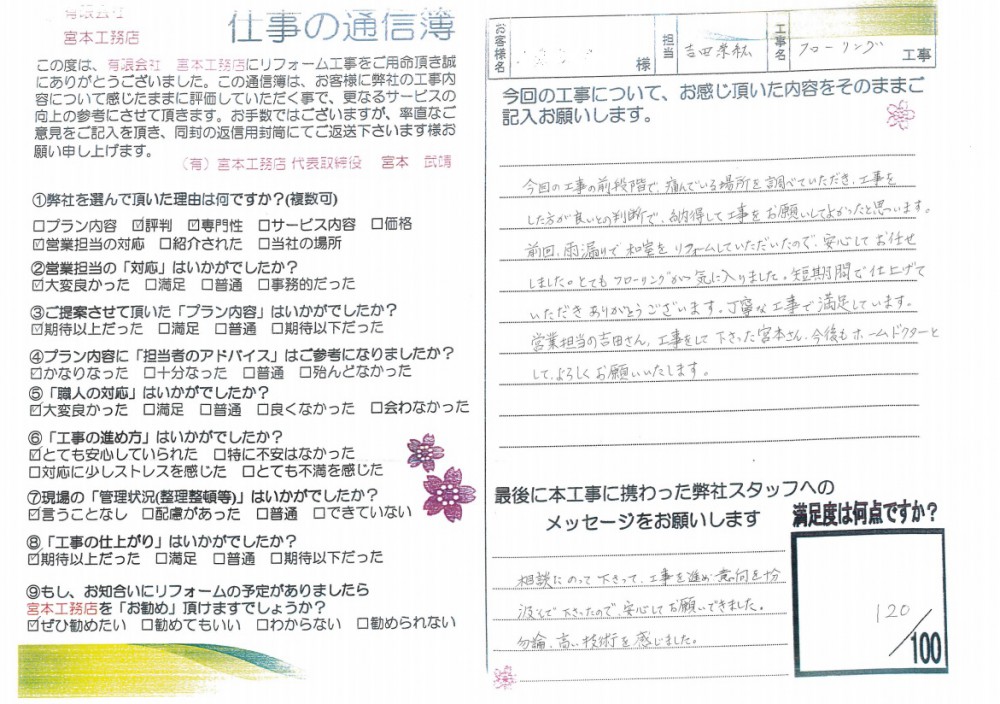 有限会社
宮本工務店
仕事の通信簿
この度は、有限会社　宮本工務店にリフォーム工事をご用命頂き誠
にありがとうございました。この通信簿は、お客様に弊社の工事内
容について感じたままに評価していただく事で、更なるサービスの
向上の参考にさせて頂きます。お手数ではございますが、率直なご
意見をご記入を頂き、同封の返信用封筒にてご返送下さいます様お
願い申し上げます。
（有）宮本工務店 代表取締役　宮本　武靖
①弊社を選んで頂いた理由は何ですか？(複数可)
□プラン内容 ☑評判 ☑専門性 □サービス内容 □価格
☑営業担当の対応 □紹介された □当社の場所
②営業担当の「対応」はいかがでしたか？
☑大変良かった □満足 □普通 □事務的だった
③ご提案させて頂いた「プラン内容」はいかがでしたか？
☑期待以上だった □満足 □普通 □期待以下だった
④プラン内容に「担当者のアドバイス」はご参考になりましたか？
☑かなりなった □十分なった □普通 □殆んどなかった
⑤「職人の対応」はいかがでしたか？
☑大変良かった □満足 □普通 □良くなかった □会わなかった
⑥「工事の進め方」はいかがでしたか？
☑とても安心していられた □特に不安はなかった
□対応に少しストレスを感じた □とても不満を感じた
⑦現場の「管理状況(整理整頓等)」はいかがでしたか？
☑言うことなし □配慮があった □普通 □できていない
⑧「工事の仕上がり」はいかがでしたか？
☑期待以上だった □満足 □普通 □期待以下だった
⑨もし、お知合いにリフォームの予定がありましたら
宮本工務店を「お勧め」頂けますでしょうか？
☑ぜひ勧めたい □勧めてもいい □わからない □勧められない
お客様名 様 担当 吉田 工事名 フローリング 工事
今回の工事について、お感じ頂いた内容をそのままご
記入お願いします。
今回の工事の前段階で、痛んでいる場所を調べていただき、工事を
した方が良いとの判断で、納得して工事をお願いしてよかったと思います。
前回、雨漏りで和室をリフォームしていただいたので、安心してお任せ
しました。とてもフローリングが気に入りました。短期間で仕上げて
いただきありがとうございます。丁寧な工事で満足しています。
営業担当の吉田さん、工事をして下さった宮本さん、今後もホームドクターと
して、よろしくお願いいたします。
最後に本工事に携わった弊社スタッフへの
メッセージをお願いします
相談にのって下さって、工事を進め意向を十分
汲んで下さったので、安心してお願いできました。
勿論、高い技術を感じました。
満足度は何点ですか？
120/100